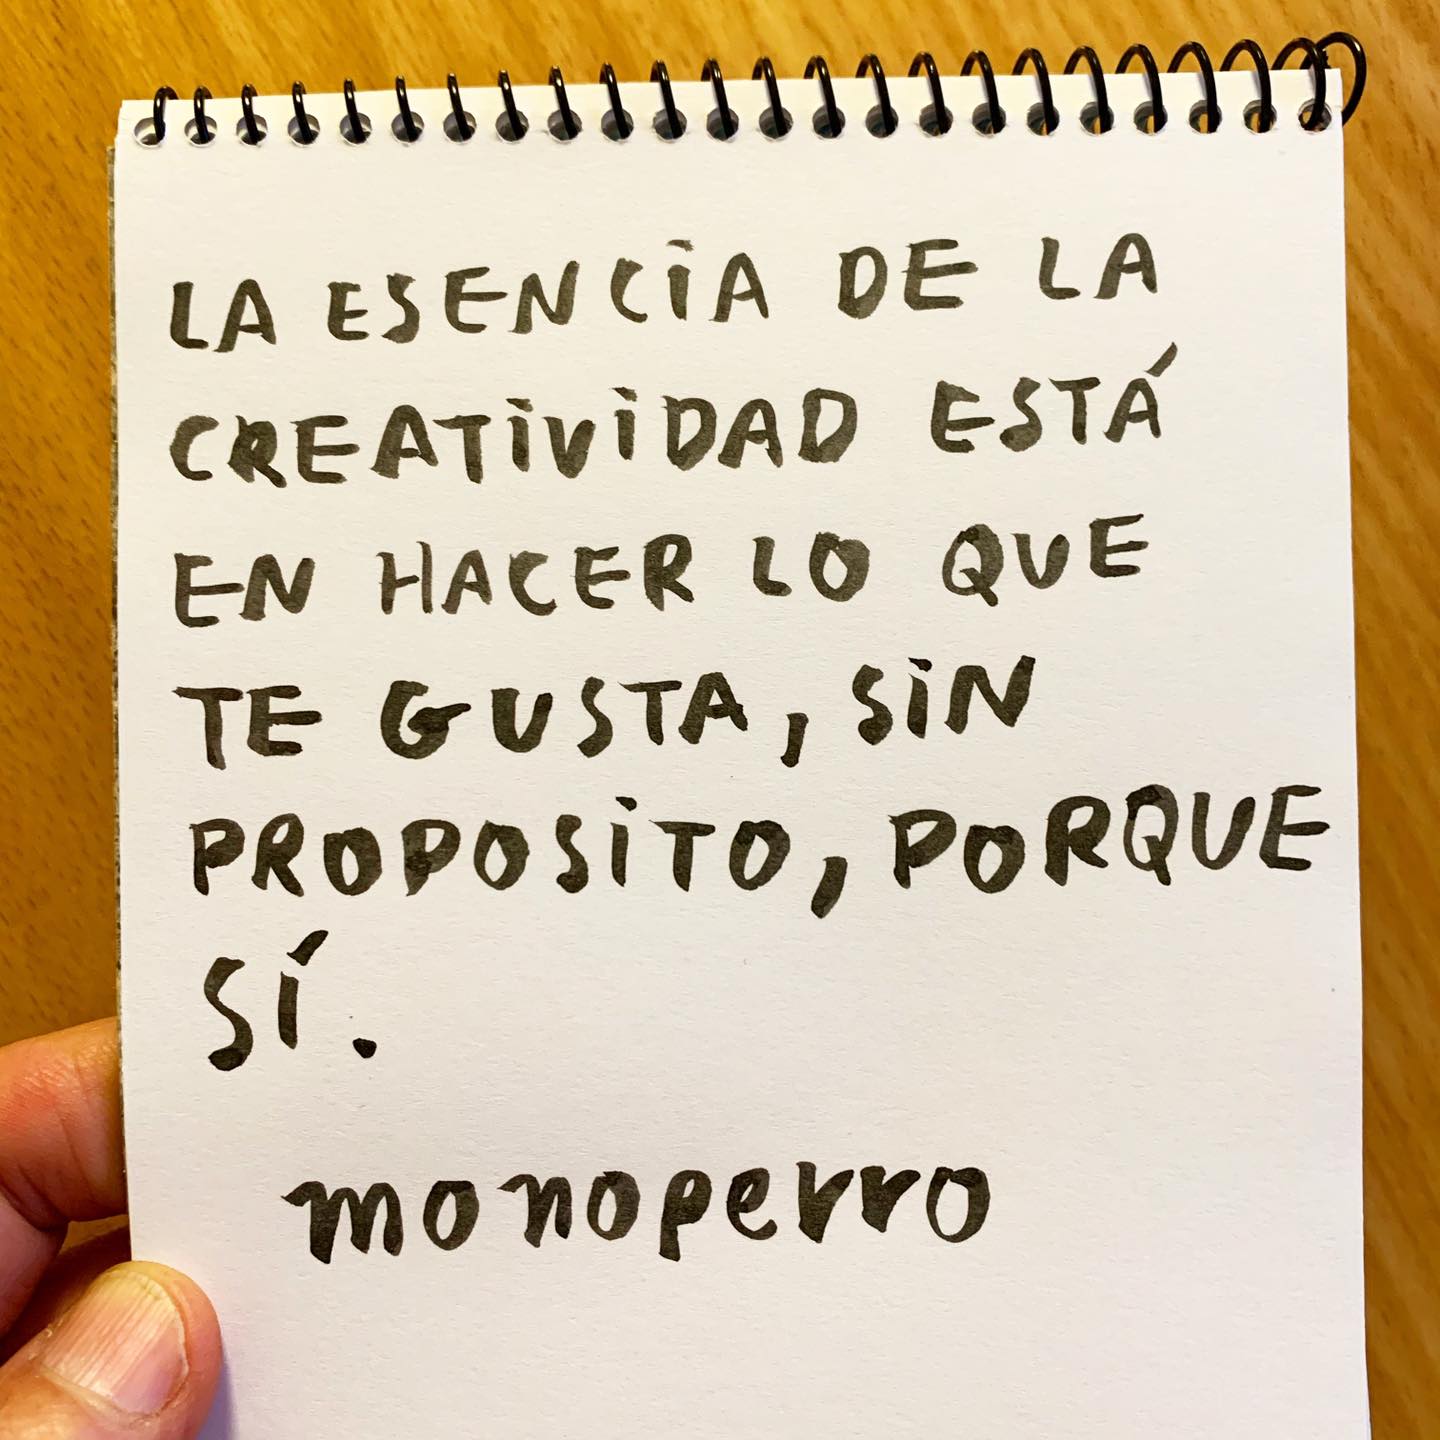 LA ESENCIA DE LA
CREATIVIDAD ESTÁ
EN HACER LO QUE
TE GUSTA, SIN
PROPOSITO, PORQUE
SÍ.
monoperro